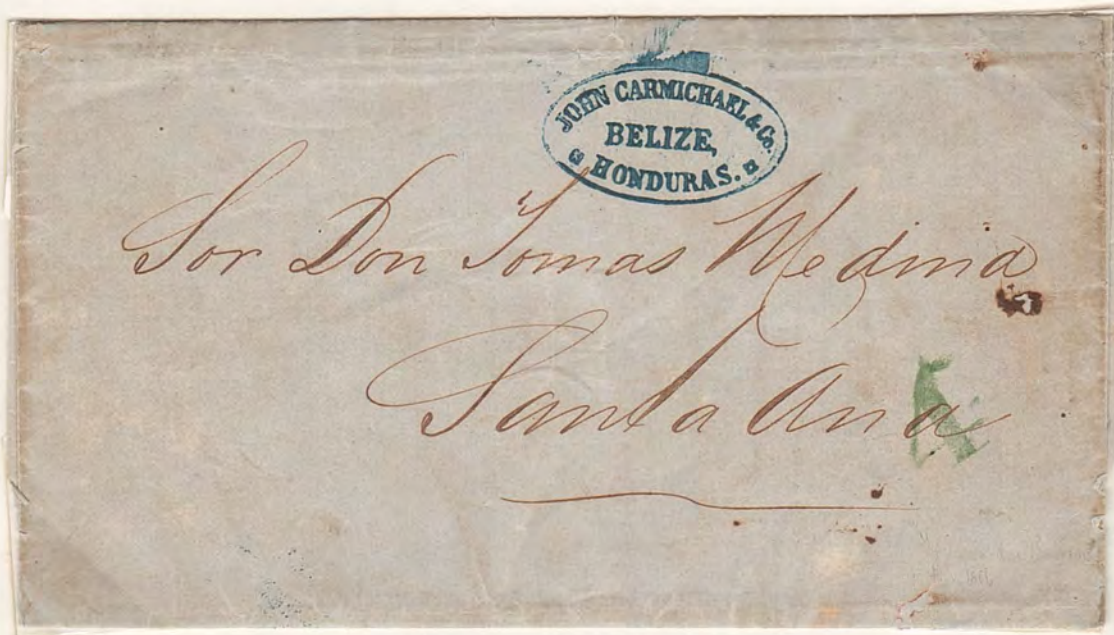 JOHN CARMICHAEL & Co.
BELIZE,
HONDURAS.
Sor Don Tomas Medina
Santa Ana